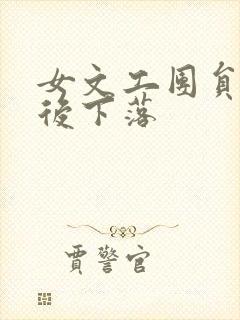 女文工团員
後下落
賈警官